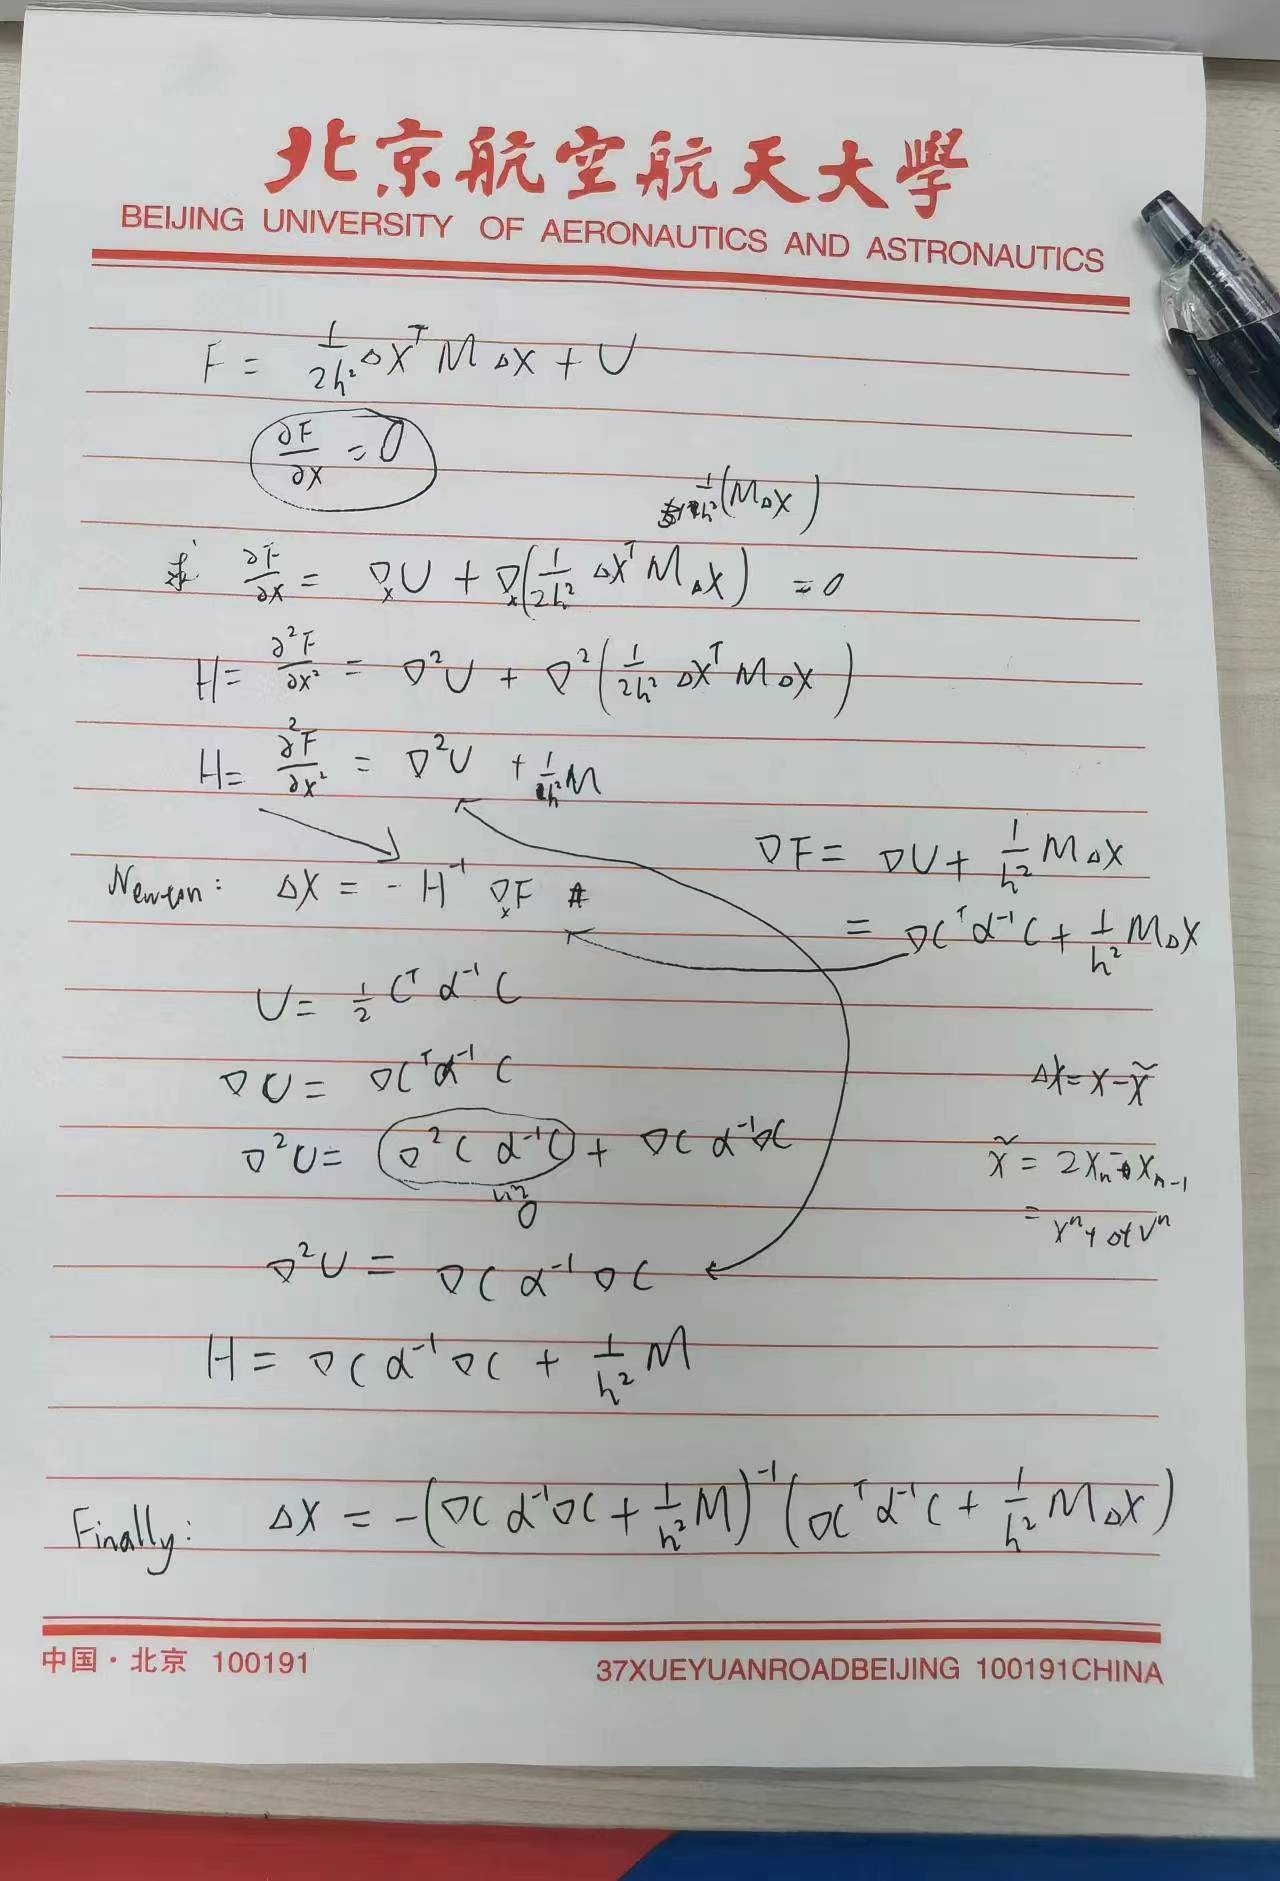 北京航空航天大學
BEIJING UNIVERSITY OF AERONAUTICS AND ASTRONAUTICS
F = 1/(2h²) ΔX^T M ΔX + U
∂F/∂X = 0
1/h² (MΔX)
求 ∂F/∂X = ∇ₓU + ∇ₓ(1/(2h²) ΔX^T M ΔX) = 0
H = ∂²F/∂X² = ∇²U + ∇²(1/(2h²) ΔX^T M ΔX)
H = ∂²F/∂X² = ∇²U + 1/h² M
∇F = ∇U + 1/h² M ΔX
Newton: ΔX = -H⁻¹ ∇ₓF #
= ∇C^T α⁻¹ C + 1/h² M ΔX
U = 1/2 C^T α⁻¹ C
∇U = ∇C^T α⁻¹ C
ΔX = X - X̃
∇²U = ∇²C α⁻¹ C + ∇C α⁻¹ ∇C
0
X̃ = 2Xₙ - Xₙ₋₁
= Xⁿ + Δt Vⁿ
∇²U = ∇C α⁻¹ ∇C
H = ∇C α⁻¹ ∇C + 1/h² M
Finally: ΔX = -(∇C α⁻¹ ∇C + 1/h² M)⁻¹ (∇C^T α⁻¹ C + 1/h² M ΔX)
中国·北京 100191
37XUEYUANROADBEIJING 100191CHINA